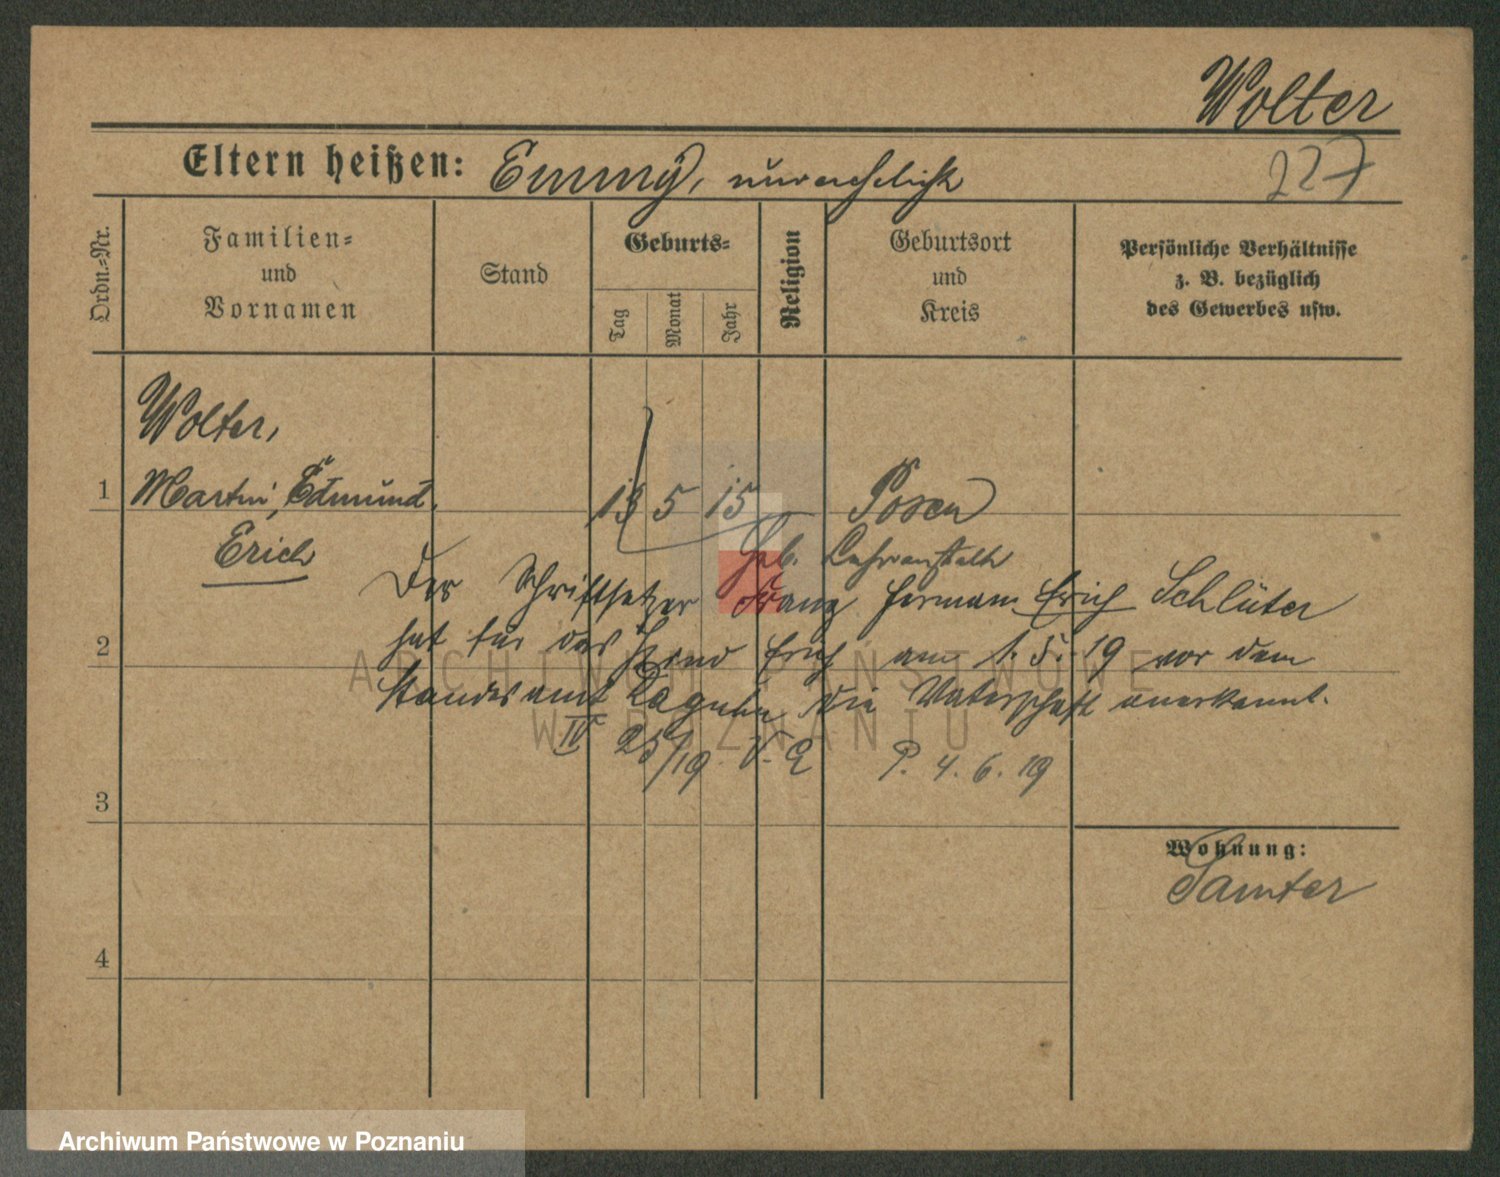 Wolter
227
Eltern heißen: Emmy, unverehelicht
Ordn.-Nr.
Familien- und Vornamen
Stand
Geburts-
Tag
Monat
Jahr
Religion
Geburtsort und Kreis
Persönliche Verhältnisse z. B. bezüglich des Gewerbes usw.
Wolter,
1 Martin, Edmund 13 5 15 Posen
Erich Heb. Lehranstalt
Der Schriftsetzer Franz Hermann Erich Schlüter
2 hat für das Kind Erich am 1. 5. 19 vor dem
Standesamt die Vaterschaft anerkannt.
IV 25/19 V. P. 4. 6. 19
3
Wohnung:
Samter
4
ARCHIWUM PAŃSTWOWE
W POZNANIU
Archiwum Państwowe w Poznaniu